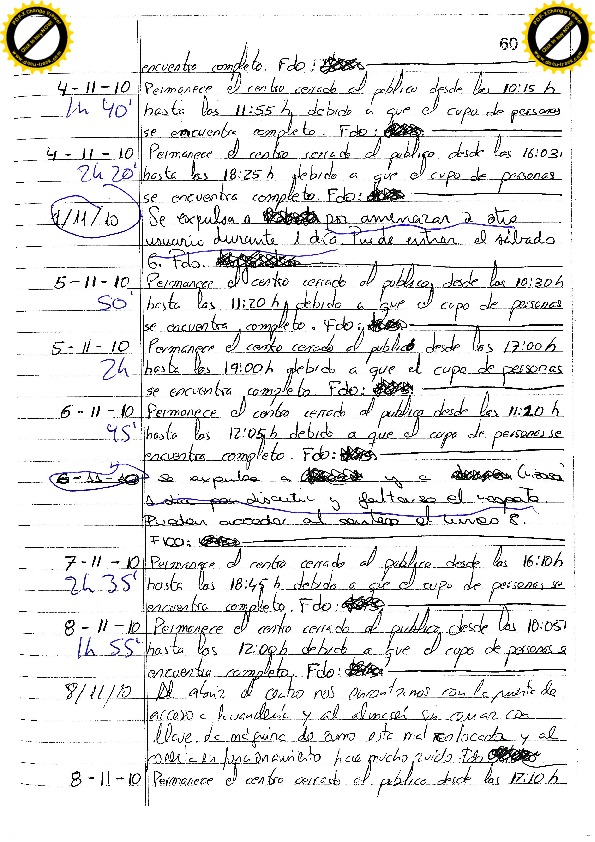 60
encuentra completo. Fdo:
4-11-10 Permanece el centro cerrado al público desde las 10:15 h
1h 40' hasta las 11:55 h, debido a que el cupo de personas
se encuentra completo. Fdo:
4-11-10 Permanece el centro cerrado al público desde las 16:03
2h 20' hasta las 18:25 h debido a que el cupo de personas
se encuentra completo. Fdo:
4/11/10 Se expulsa a por amenazar a otro
usuario durante 1 día. Puede entrar el sábado
6. Fdo.
5-11-10 Permanece el centro cerrado al público, desde las 10:30 h
50' hasta las 11:20 h, debido a que el cupo de personas
se encuentra completo. Fdo:
5-11-10 Permanece el centro cerrado al público desde las 17:00 h
2h hasta las 19:00 h debido a que el cupo de personas
se encuentra completo Fdo:
6-11-10 Permanece el centro cerrado al público desde las 11:20 h
45' hasta las 12:05 h debido a que el cupo de personas se
encuentra completo. Fdo:
6-11-10 se expulsa a y a
por discutir y faltarse el respeto.
Pueden acceder al centro el lunes 8.
Fdo:
7-11-10 Permanece el centro cerrado al público desde las 16:10 h
2h 35' hasta las 18:45 h debido a que el cupo de personas se
encuentra completo. Fdo:
8-11-10 Permanece el centro cerrado al público desde las 10:05
1h 55' hasta las 12:00 h debido a que el cupo de personas se
encuentra completo. Fdo:
8/11/10 Al abrir el centro nos encontramos con la puerta de
acceso a lavandería y al almacén sin cerrar con
llave. La máquina de zumo está mal colocada y al
en funcionamiento hace mucho ruido. Fdo
8-11-10 Permanece el centro cerrado al público desde las 17:10 h